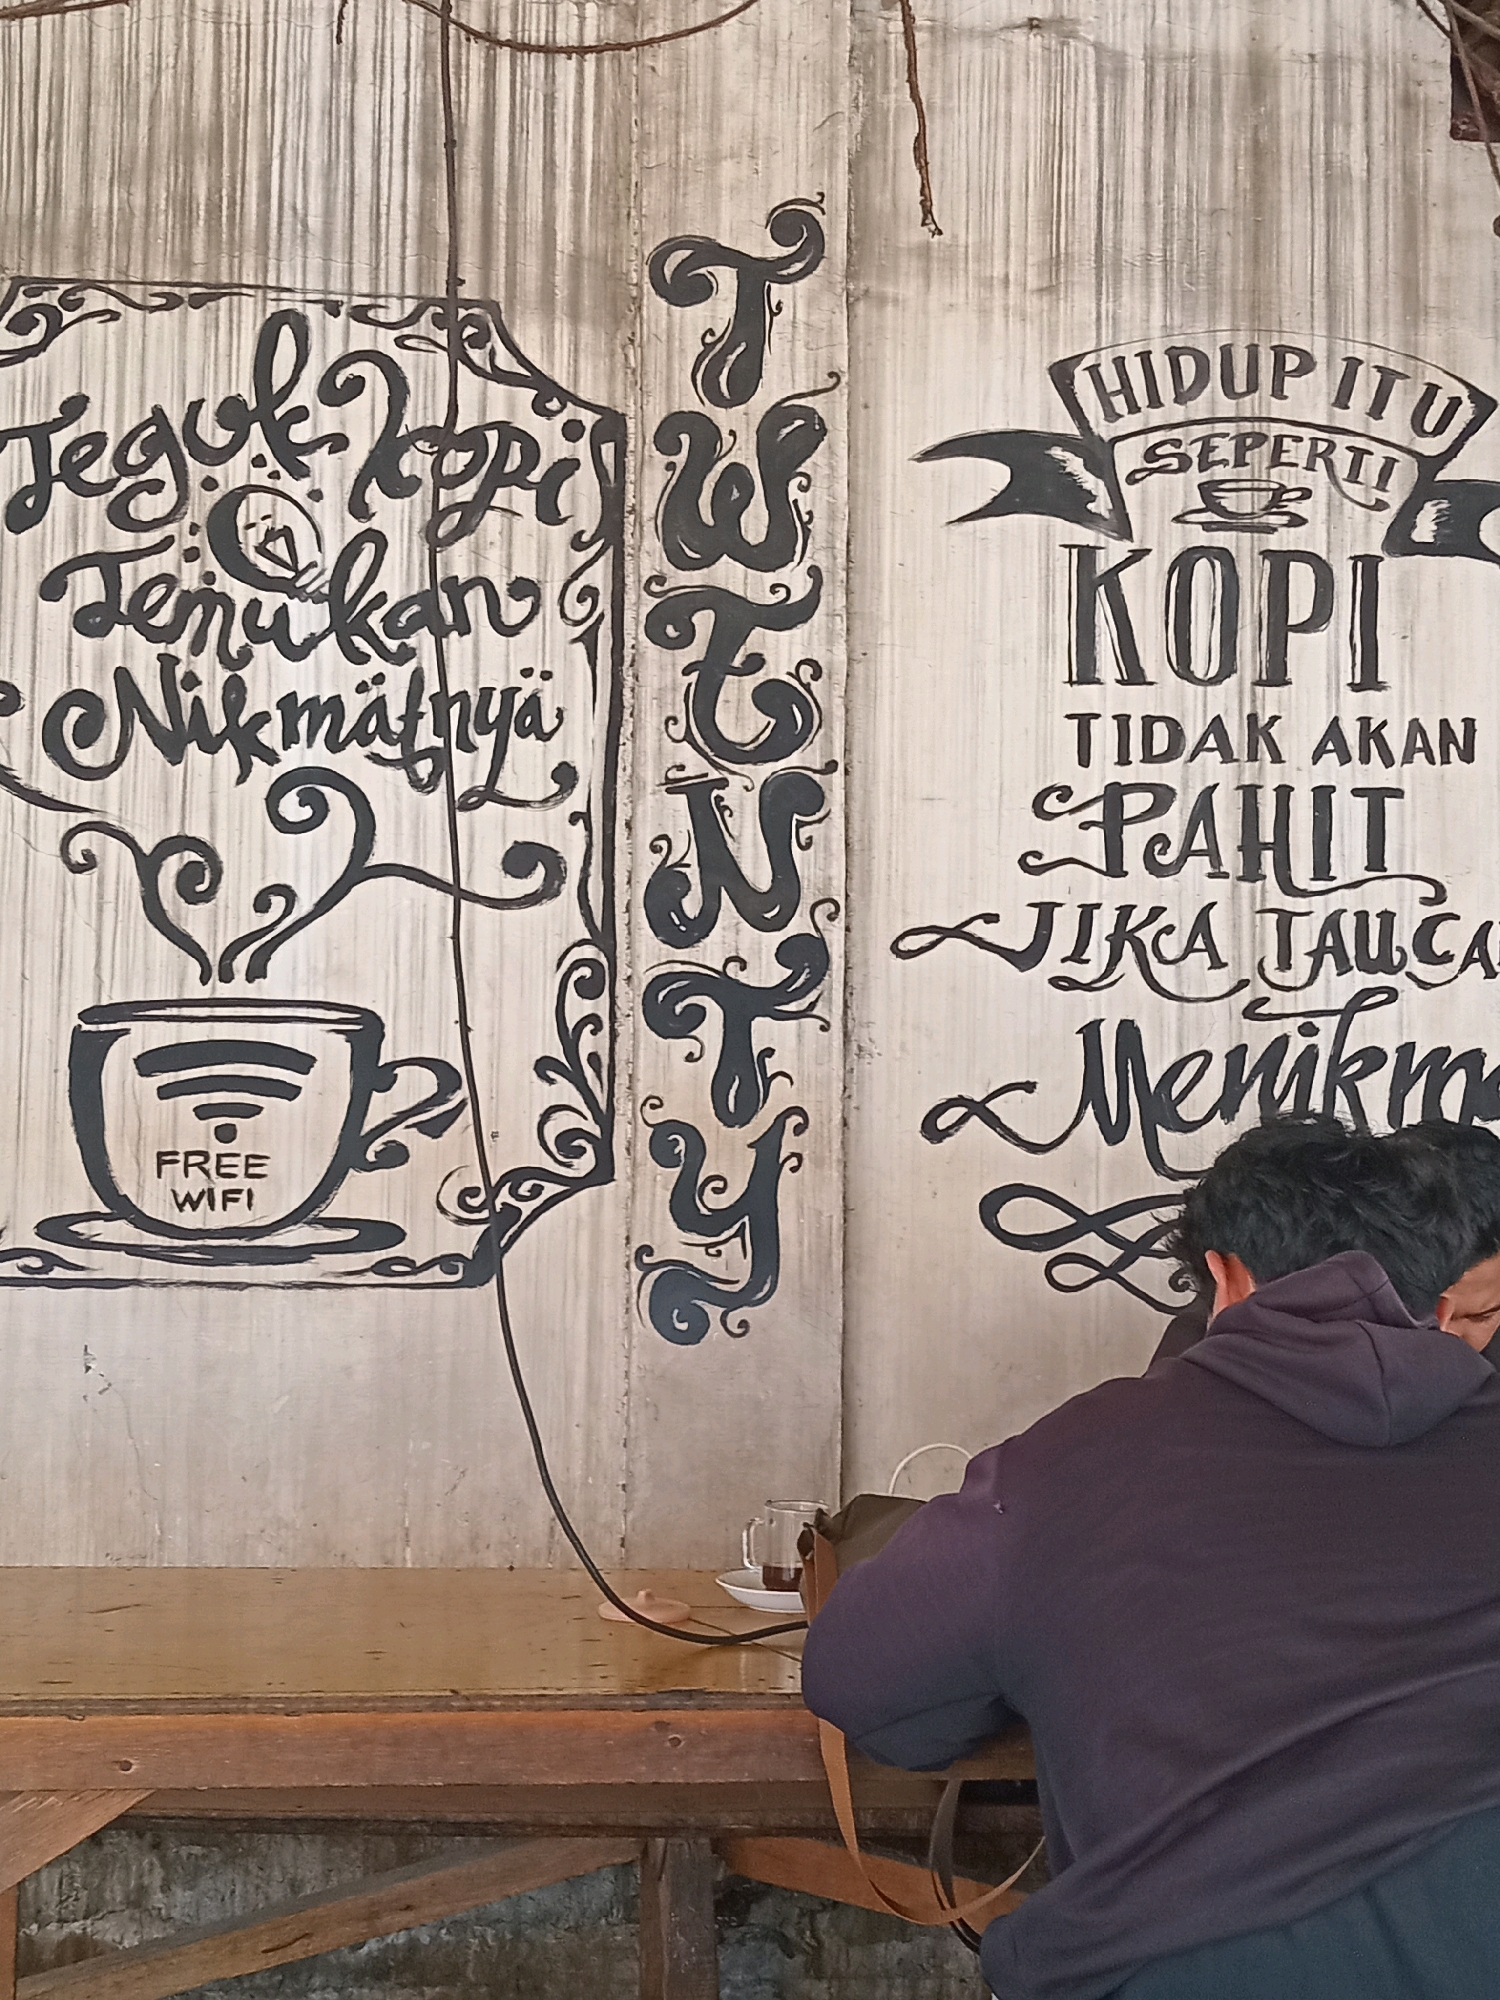 Teguk Kopi
Temukan
Nikmatnya
FREE
WIFI
TWENTY
HIDUP ITU
SEPERTI
KOPI
TIDAK AKAN
PAHIT
JIKA TAU